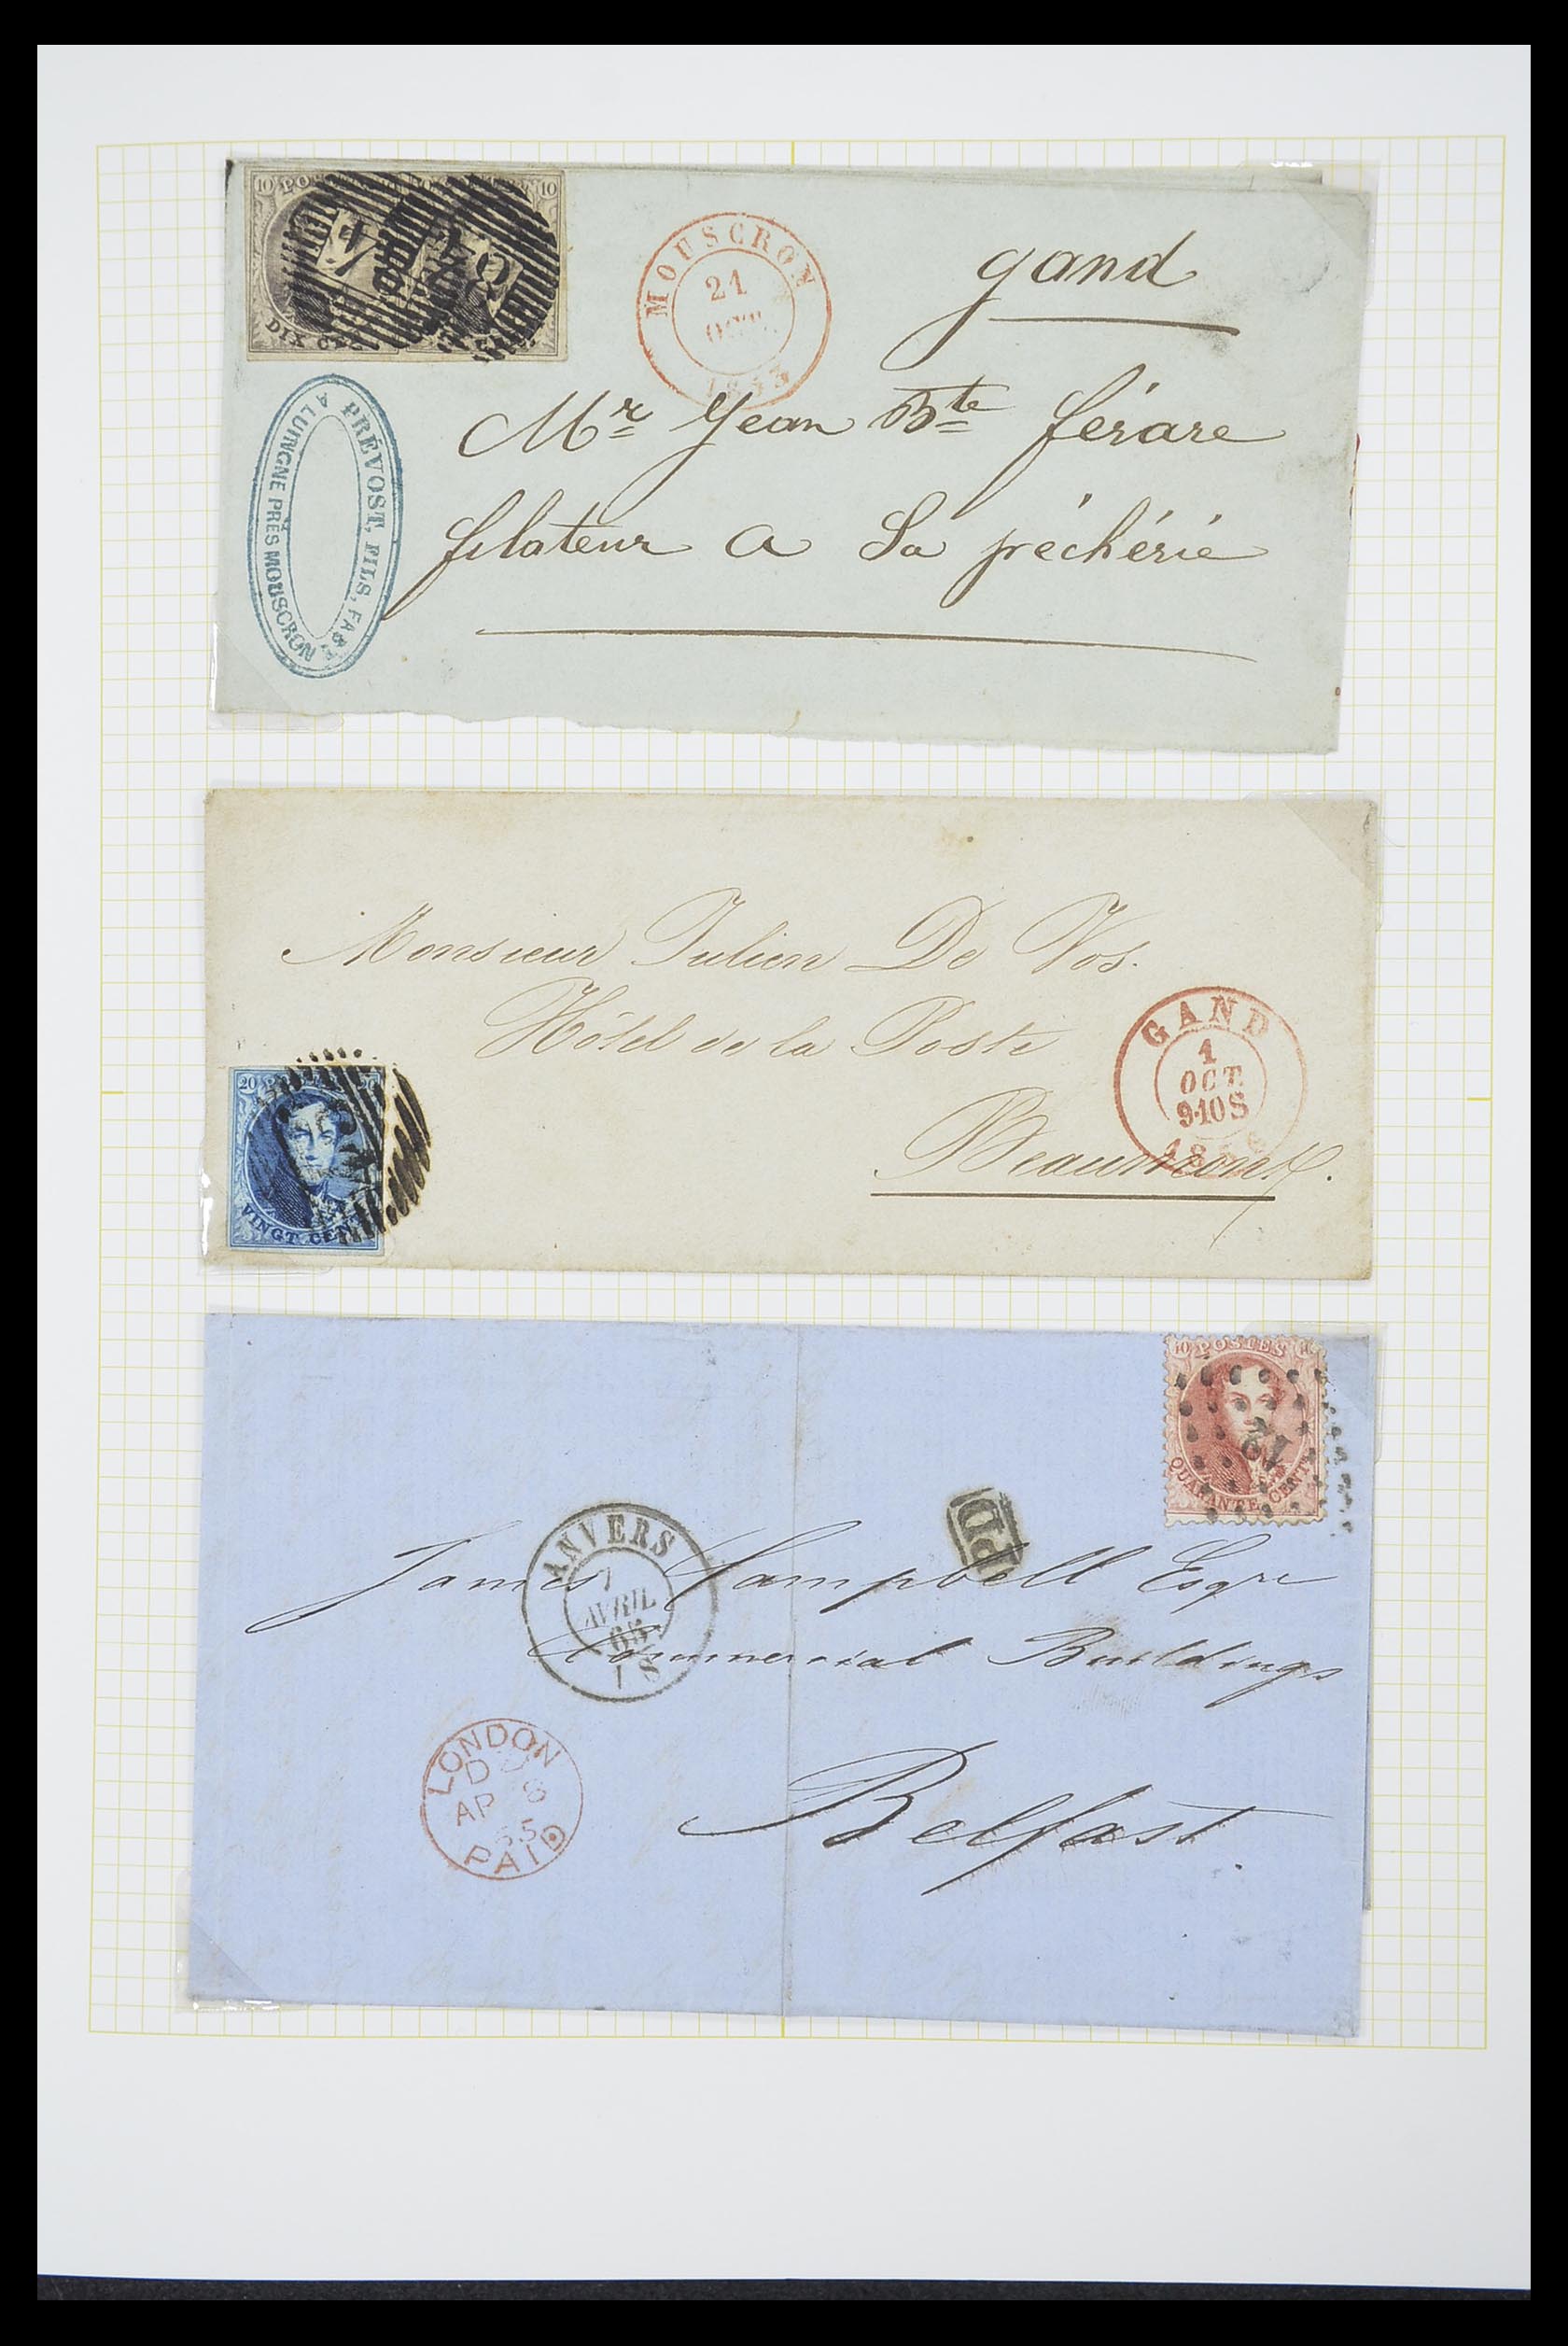 10 PO 10
DIX CEN
MOUSCRON
21
OCTE
1853
gand
Mr Jean Bte férare
filateur a La péchérie
PRÉVOST, FILS, FABT
A LUINGNE PRÈS MOUSCRON
Monsieur Julien De Vos.
Hôtel de la Poste
Beaumont.
GAND
1
OCT.
9-10S
20
VINGT CEN
10 POSTES
12
QUARANTE CENT
PD
ANVERS
7
AVRIL
65
1 S
James Campbell Esqre
Commercial Buildings
Belfast.
LONDON
AP 8
65
PAID